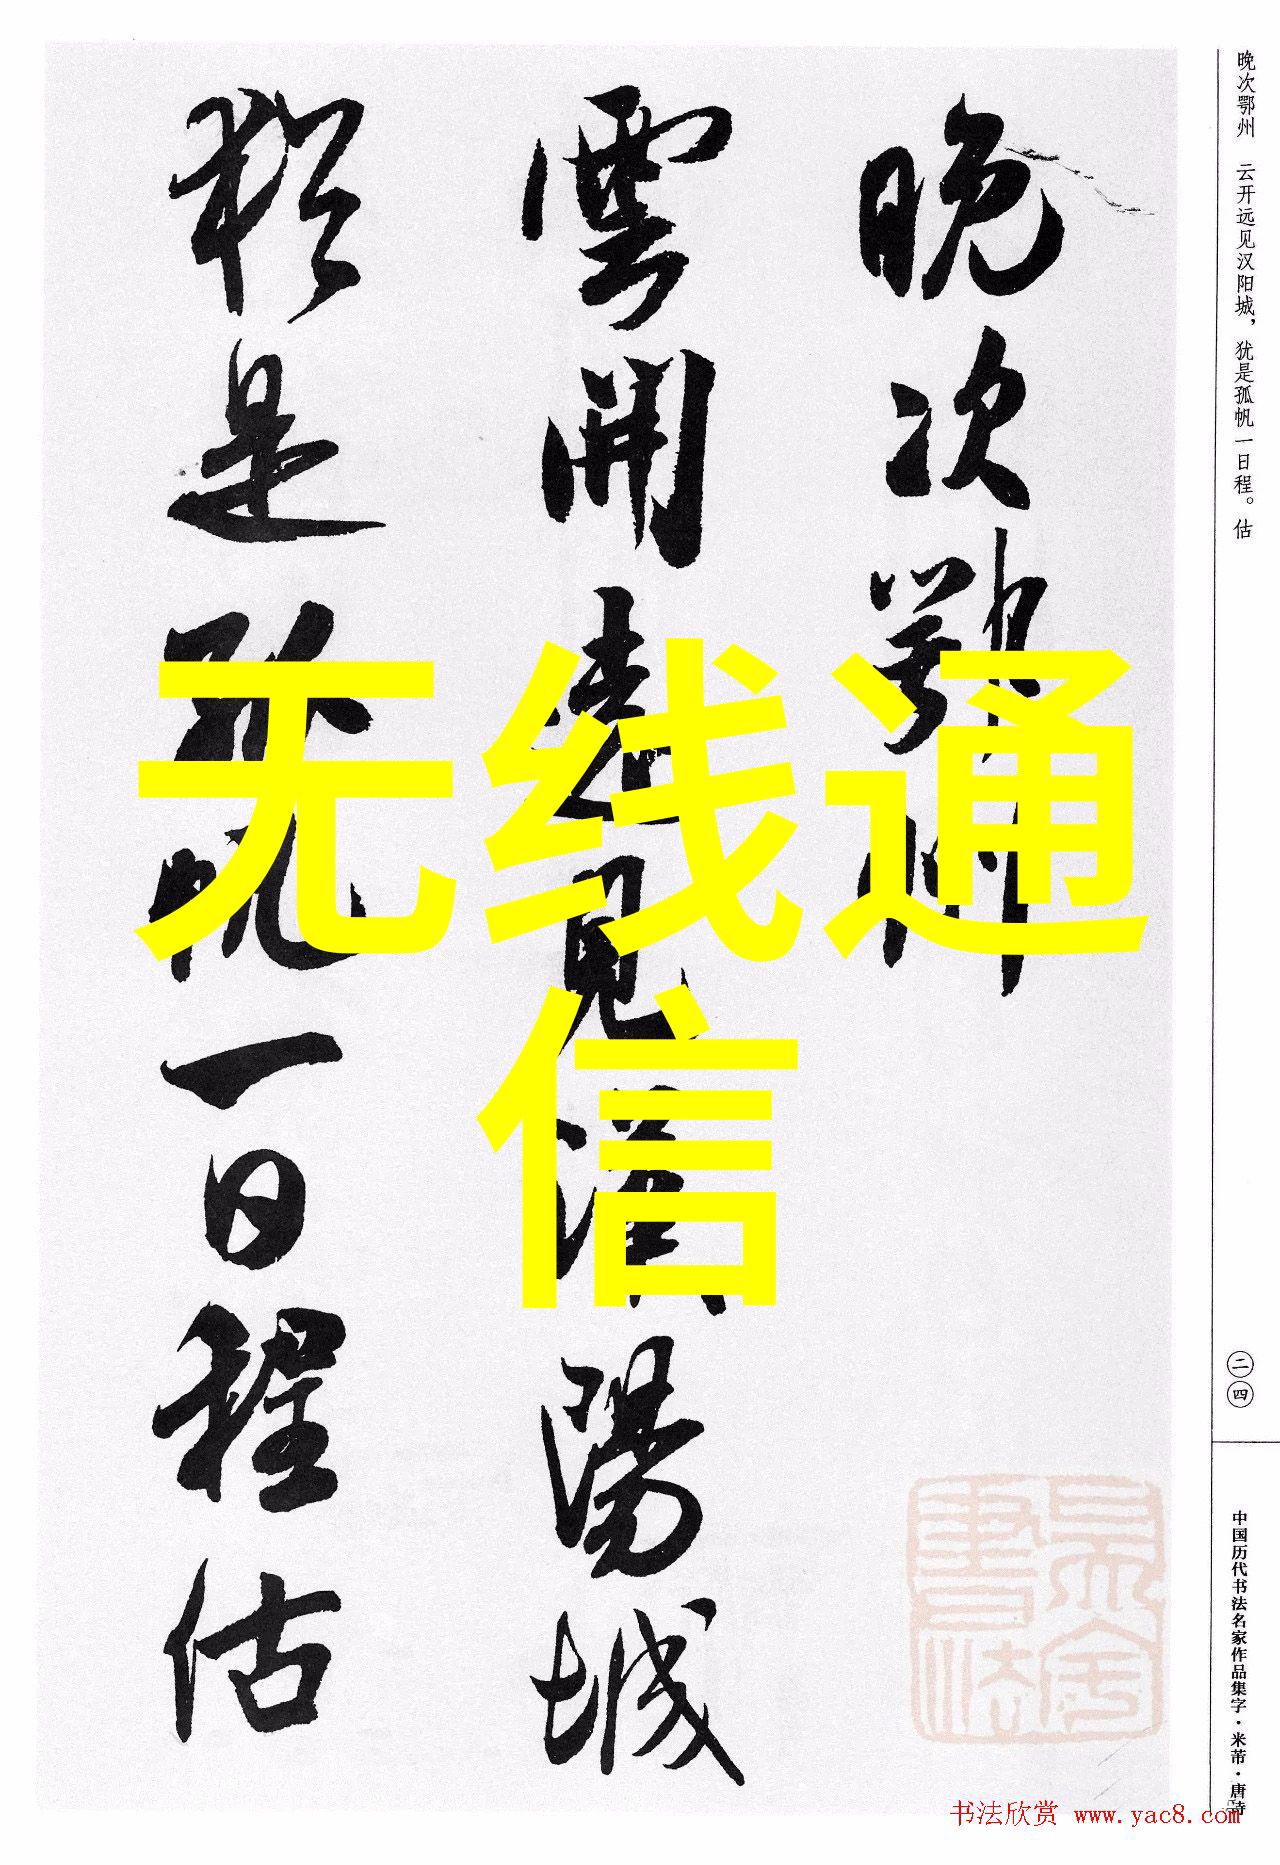 晚次鄂州 云开远见汉阳城，犹是孤帆一日程。估
晚次鄂州
雲開遠見漢陽城
猶是孤帆一日程估
无线通
信
二四
中国历代书法名家作品集字·米芾·唐诗
书法欣赏 www.yac8.com